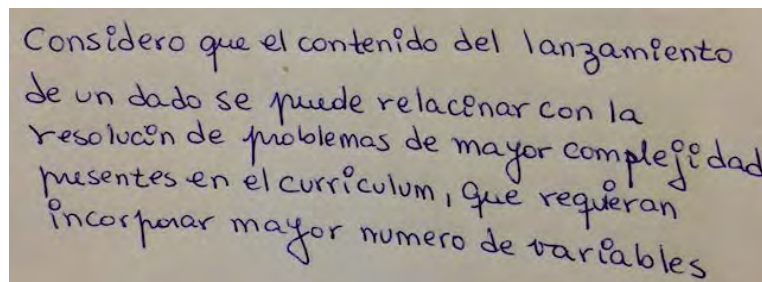 Considero que el contenido del lanzamiento
de un dado se puede relacinar con la
resolucin de problemas de mayor complejidad
presentes en el curriculum, que requieran
incorporar mayor numero de variables